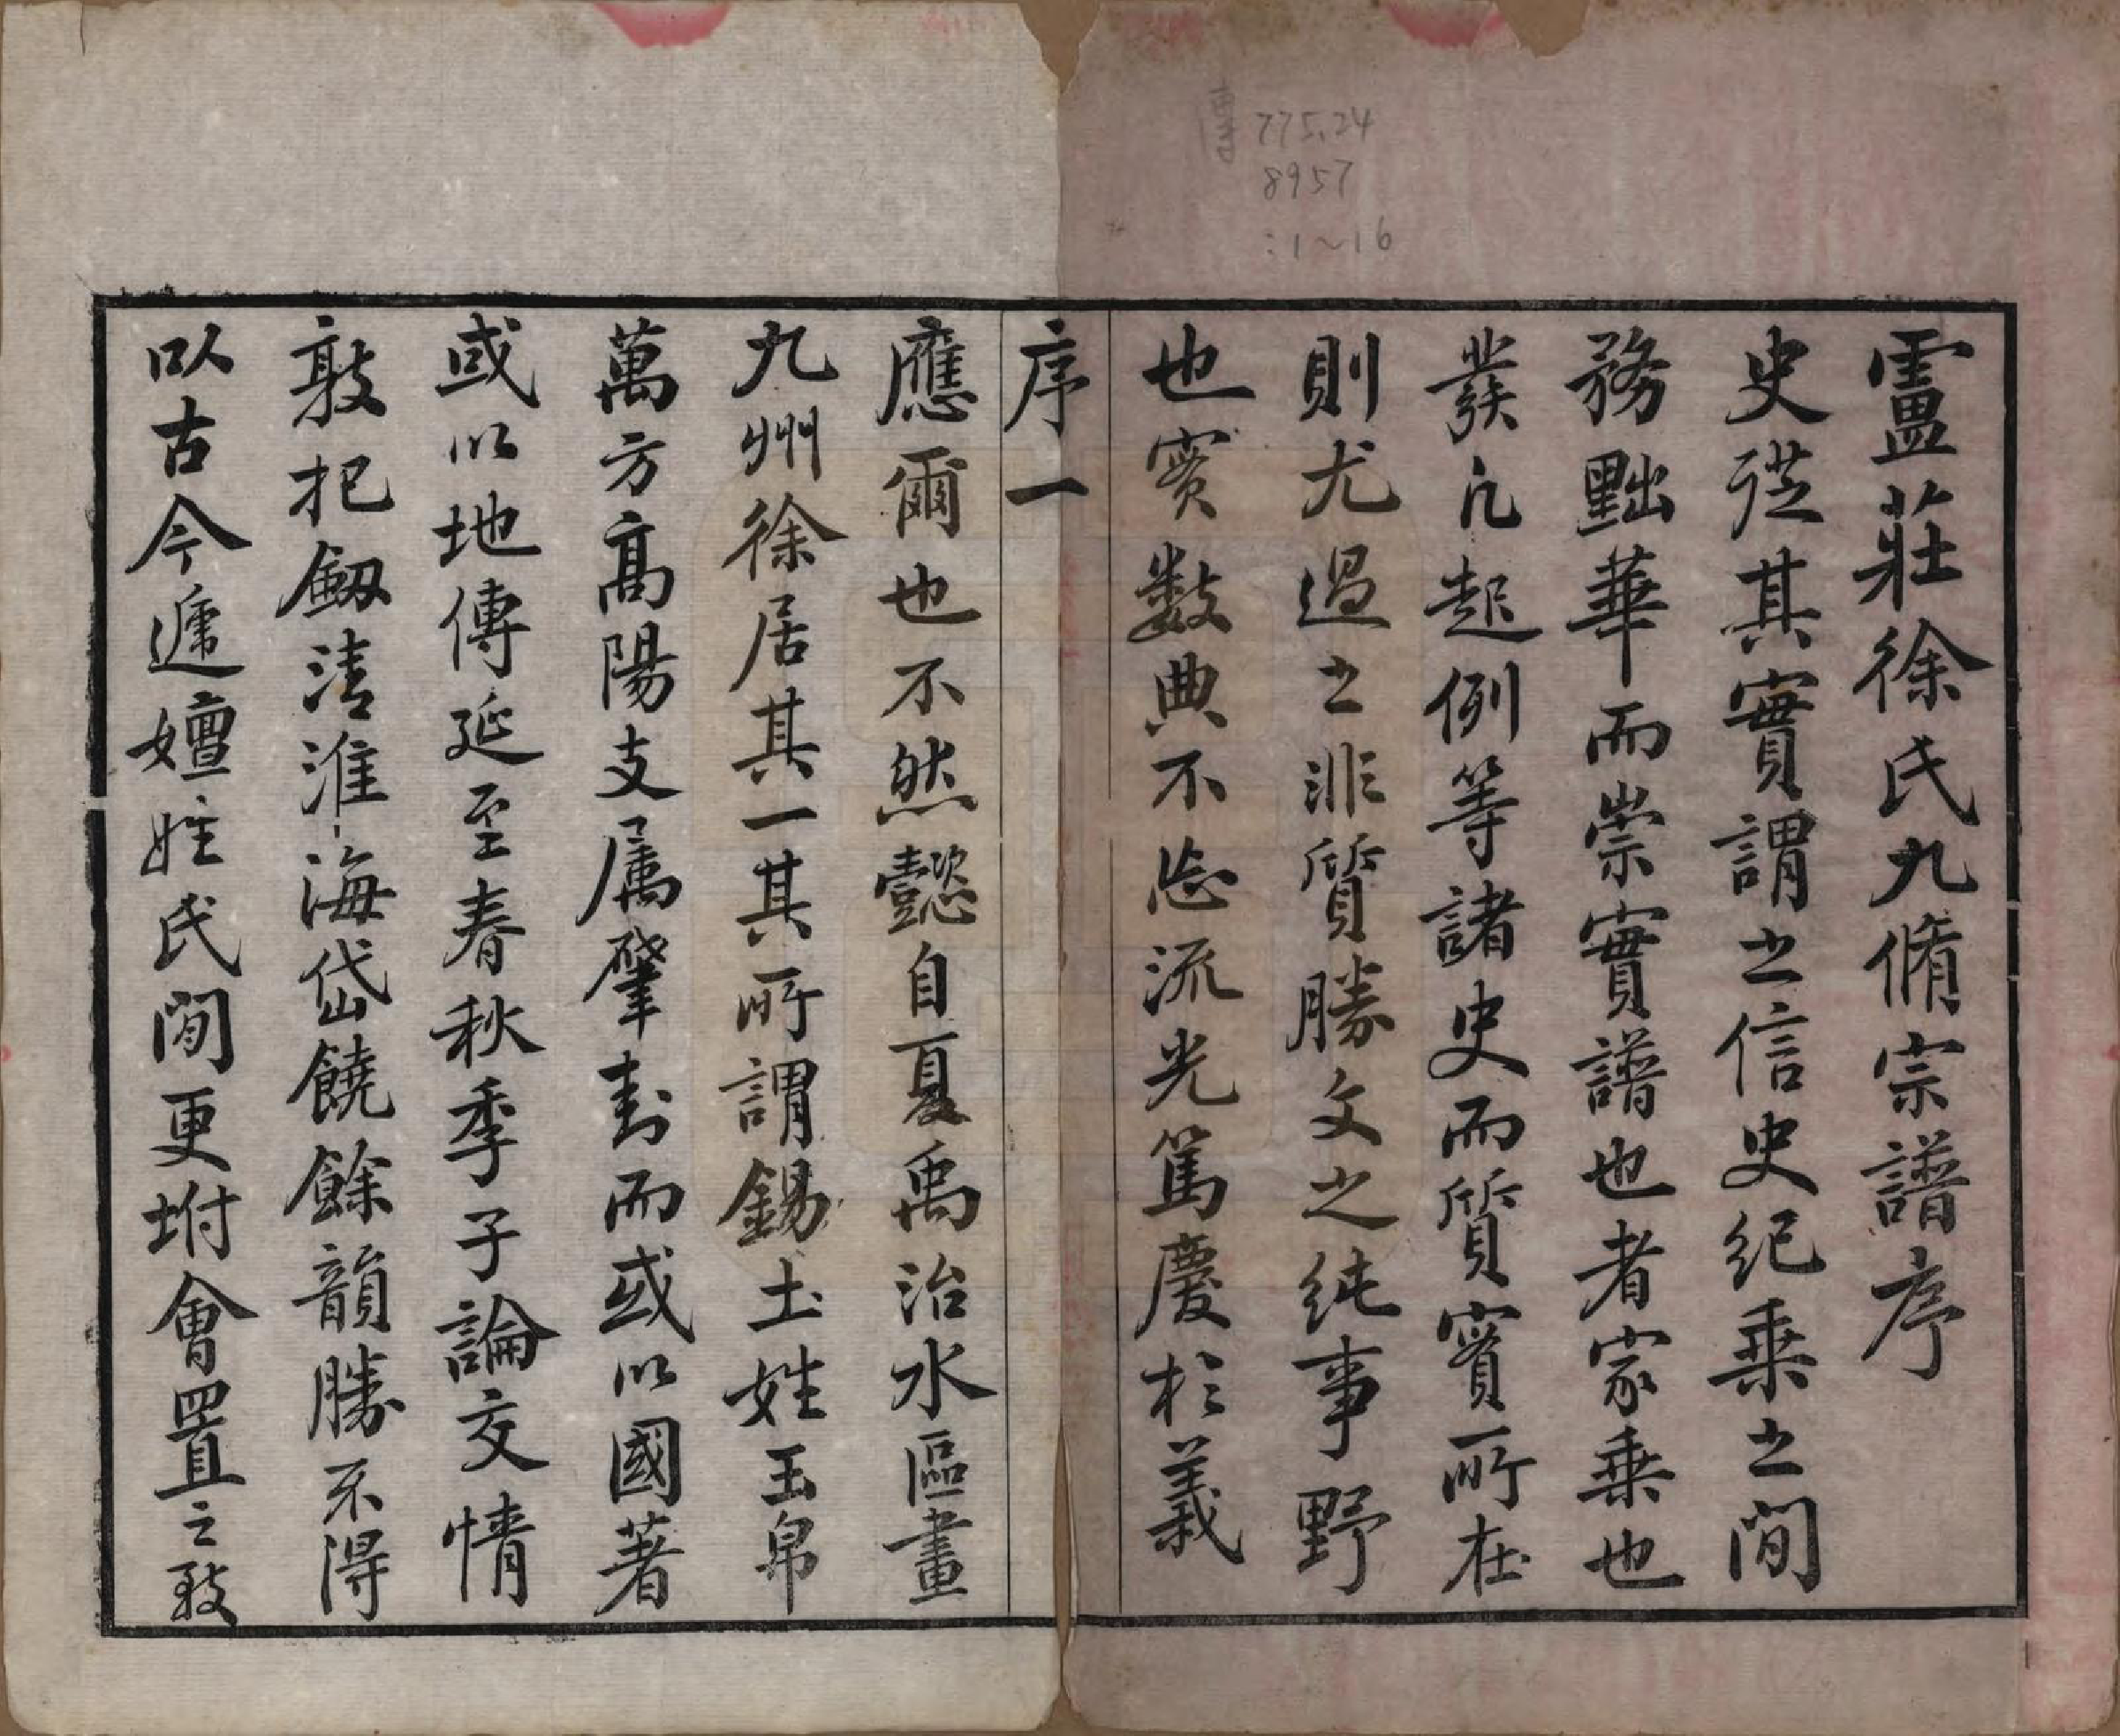 傳 775.24
8957
:1~16
靈莊徐氏九脩宗譜序
史從其實謂之信史紀乘之間
務黜華而崇實譜也者家乘也
發凡起例等諸史而質實所在
則尤過之非質勝文之純事野
也實數典不忘流光篤慶於義
序一
應爾也不然懿自夏禹治水區畫
九州徐居其一其所謂錫土姓玉帛
萬方高陽支属肇封而或以國著
或以地傳延至春秋季子論交情
敦把劔清淮海岱饒餘韻勝不得
以古今遞嬗姓氏間更坿會置之致